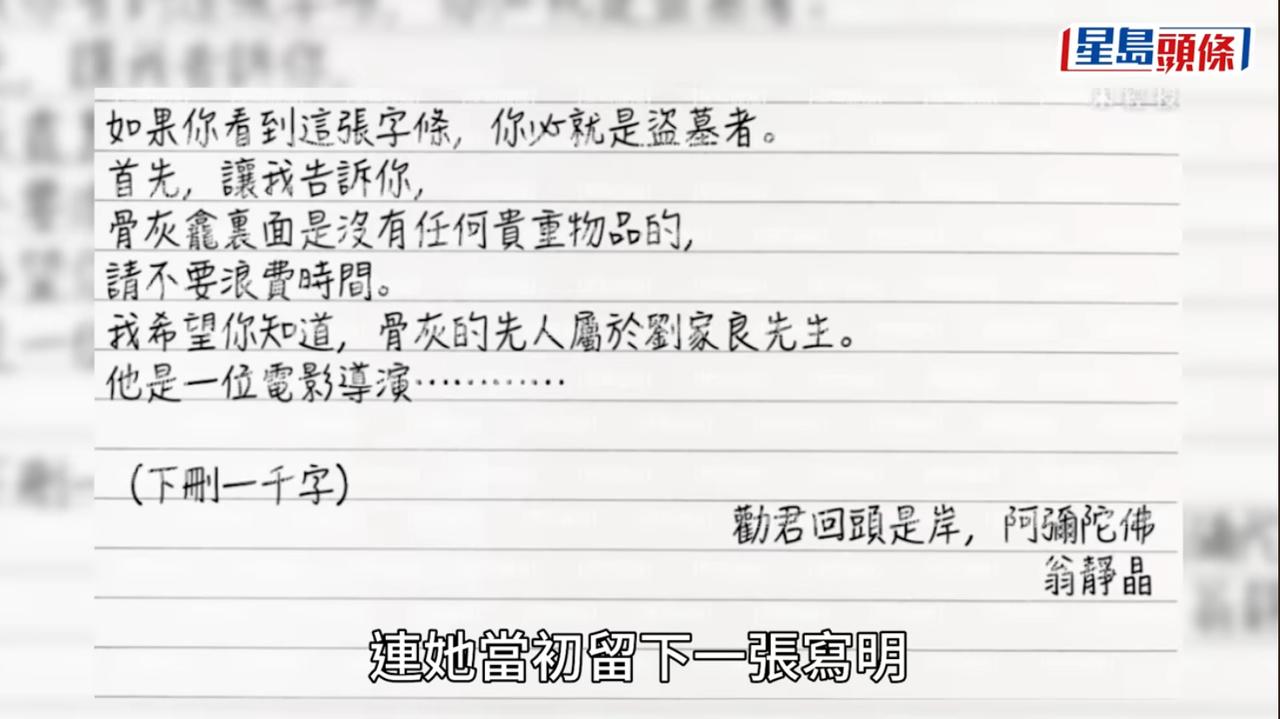 星島頭條
如果你看到這張字條，你必就是盜墓者。
首先，讓我告訴你，
骨灰龕裏面是沒有任何貴重物品的，
請不要浪費時間。
我希望你知道，骨灰的先人屬於劉家良先生。
他是一位電影導演…………
（下刪一千字）
勸君回頭是岸，阿彌陀佛
翁靜晶
連她當初留下一張寫明